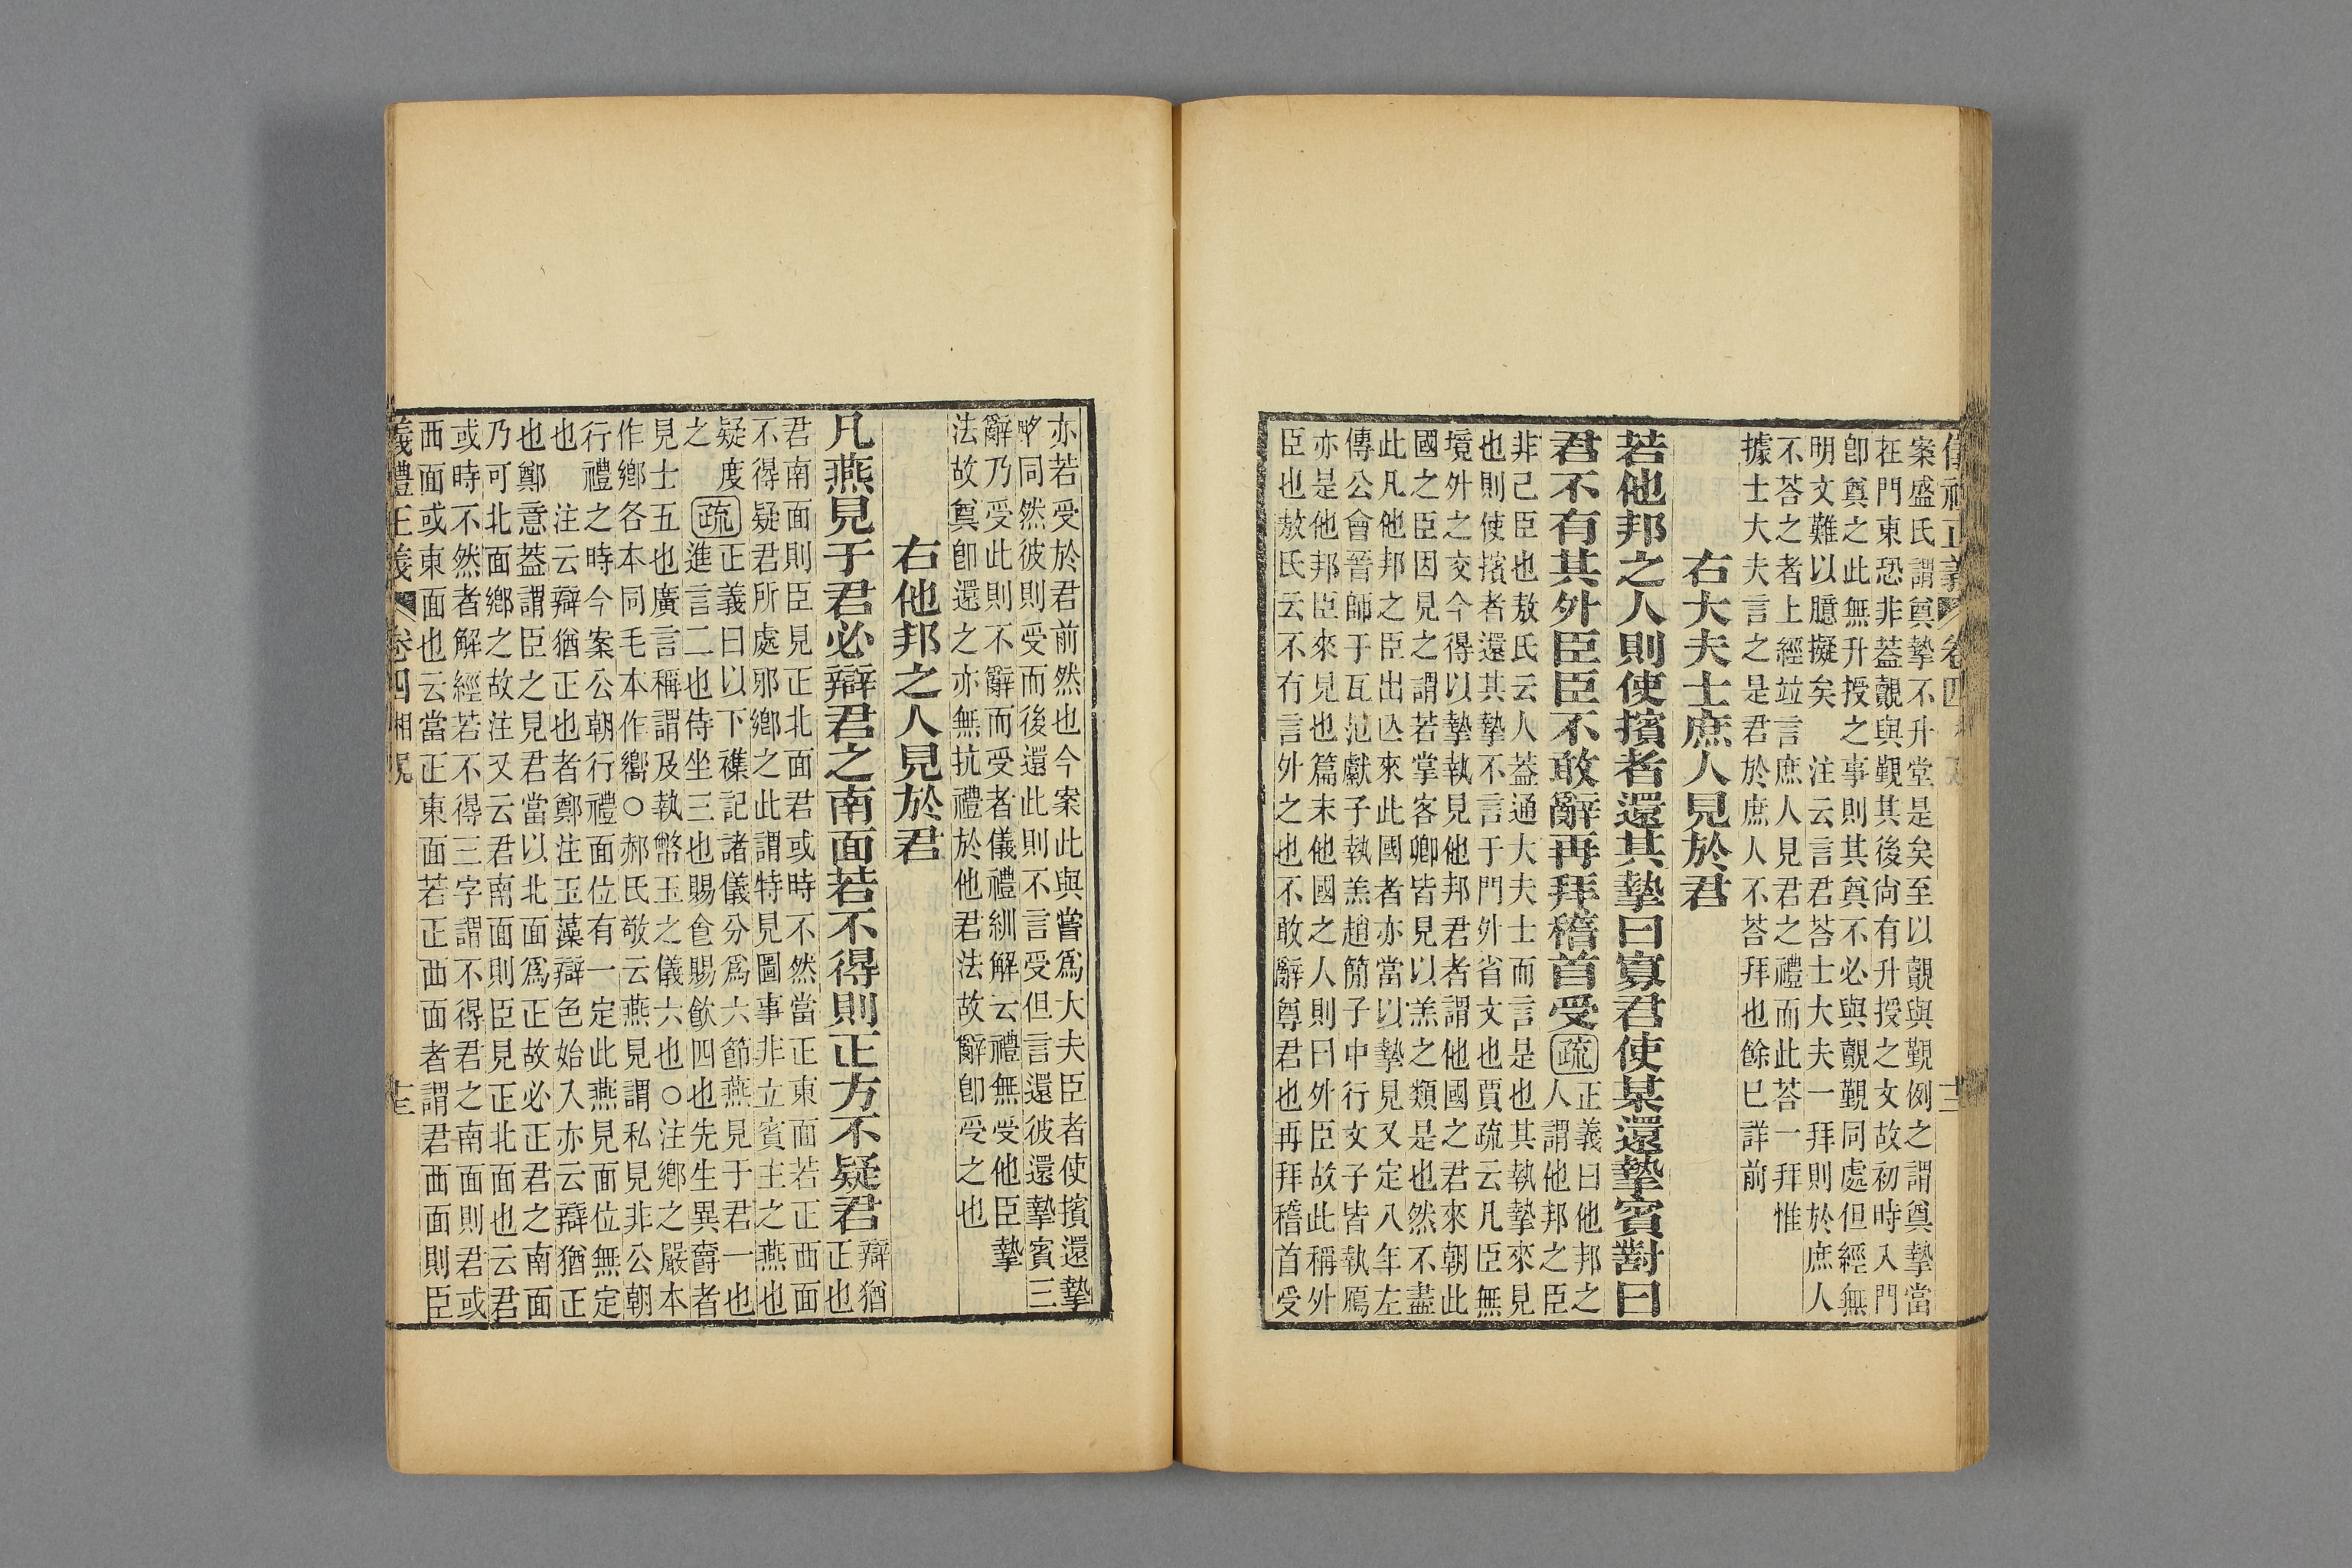 儀禮正義 卷四 十三
案盛氏謂奠摯不升堂是矣至以覿與覲例之謂奠摯當
在門東恐非蓋覿與覲其後尙有升授之文故初時入門
卽奠之此無升授之事則其奠不必與覿覲同處但經無
明文難以臆擬矣　注云言君荅士大夫一拜則於庶人
不荅之者上經竝言庶人見君之禮而此荅一拜惟
據士大夫言之是君於庶人不荅拜也餘巳詳前
右大夫士庶人見於君
若他邦之人則使擯者還其摯曰寡君使某還摯賓對曰
君不有其外臣臣不敢辭再拜稽首受疏正義曰他邦之
人謂他邦之臣
非己臣也敖氏云人蓋通大夫士而言是也其執摯來見
也則使擯者還其摯不言于門外省文也賈疏云凡臣無
境外之交今得以摯執見他邦君者謂他國之君來朝此
國之臣因見之謂若掌客卿皆見以羔之類是也然不盡
此凡他邦之臣出亾來此國者亦當以摯見又定八年左
傳公會晉師于瓦范獻子執羔趙簡子中行文子皆執鴈
亦是他邦臣來見也篇末他國之人則曰外臣故此稱外
臣也敖氏云不有言外之也不敢辭尊君也再拜稽首受
亦若受於君前然也今案此與嘗爲大夫臣者使擯還摯
畧同然彼則受而後還此則不言受但言還彼還摯賓三
辭乃受此則不辭而受者儀禮紃解云禮無受他臣摯
法故奠卽還之亦無抗禮於他君法故辭卽受之也
右他邦之人見於君
凡燕見于君必辯君之南面若不得則正方不疑君辯猶
正也
君南面則臣見正北面君或時不然當正東面若正西面
不得疑君所處邪鄉之此謂特見圖事非立賓主之燕也
疑度
之　疏正義曰以下襍記諸儀分爲六節燕見于君一也
進言二也侍坐三也賜食賜飮四也先生異爵者
見士五也廣言稱謂及執幣玉之儀六也○注鄉之嚴本
作鄉各本同毛本作嚮○郝氏敬云燕見謂私見非公朝
行禮之時今案公朝行禮面位有一定此燕見面位無定
也　注云辯猶正也者鄭注玉藻辯色始入亦云辯猶正
也鄭意蓋謂臣之見君當以北面爲正故必正君之南面
乃可北面鄉之故注又云君南面則臣見正北面也云君
或時不然者解經若不得三字謂不得君之南面則君或
西面或東面也云當正東面若正西面者謂君西面則臣
儀禮正義 卷四 相見 十三